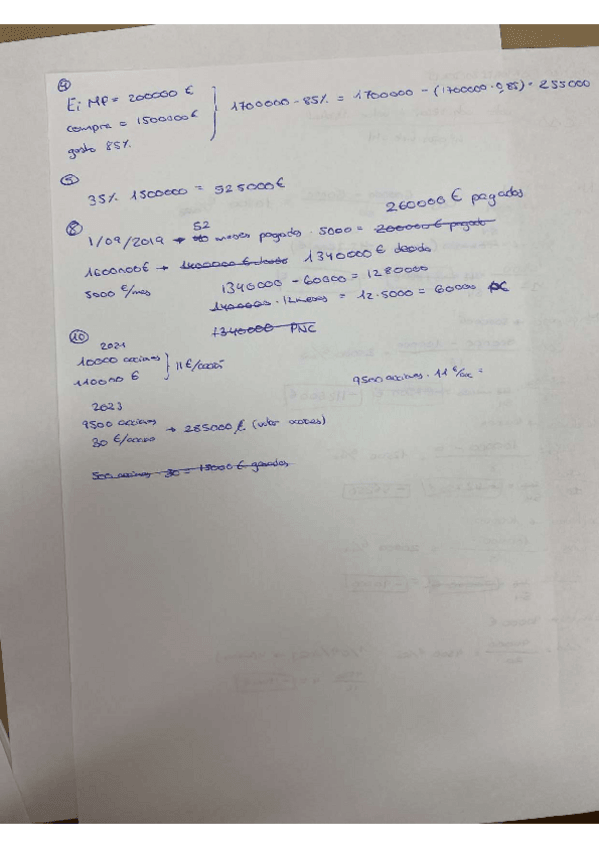 ④
Ei MP = 200000 €
compra = 1500000 €
gasto 85%
1700000 - 85% = 1700000 - (1700000 · 0,85) = 255000
⑤
35% 1500000 = 525000 €
260000 € pagados
⑧
52
1/09/2019 → meses pagados · 5000 = 200000 € pagado
1600000 € → 1400000 € deuda 1340000 € deuda
5000 €/mes
1340000 - 60000 = 1280000
1400000 · 12 meses = 12 · 5000 = 60000 PC
1340000 PNC
⑩
2021
10000 acciones
110000 €
11 €/acción
9500 acciones · 11 €/acc =
2023
9500 acciones
30 €/accion
→ 285000 € (valor acciones)
500 acciones · 30 = 15000 € ganados